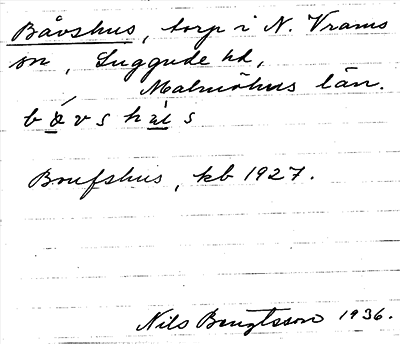 Båvshus, torp i N. Vrams
sn, Luggude hd,
Malmöhus län.
Brufshus, kb 1927.
Nils Bengtsson 1936.